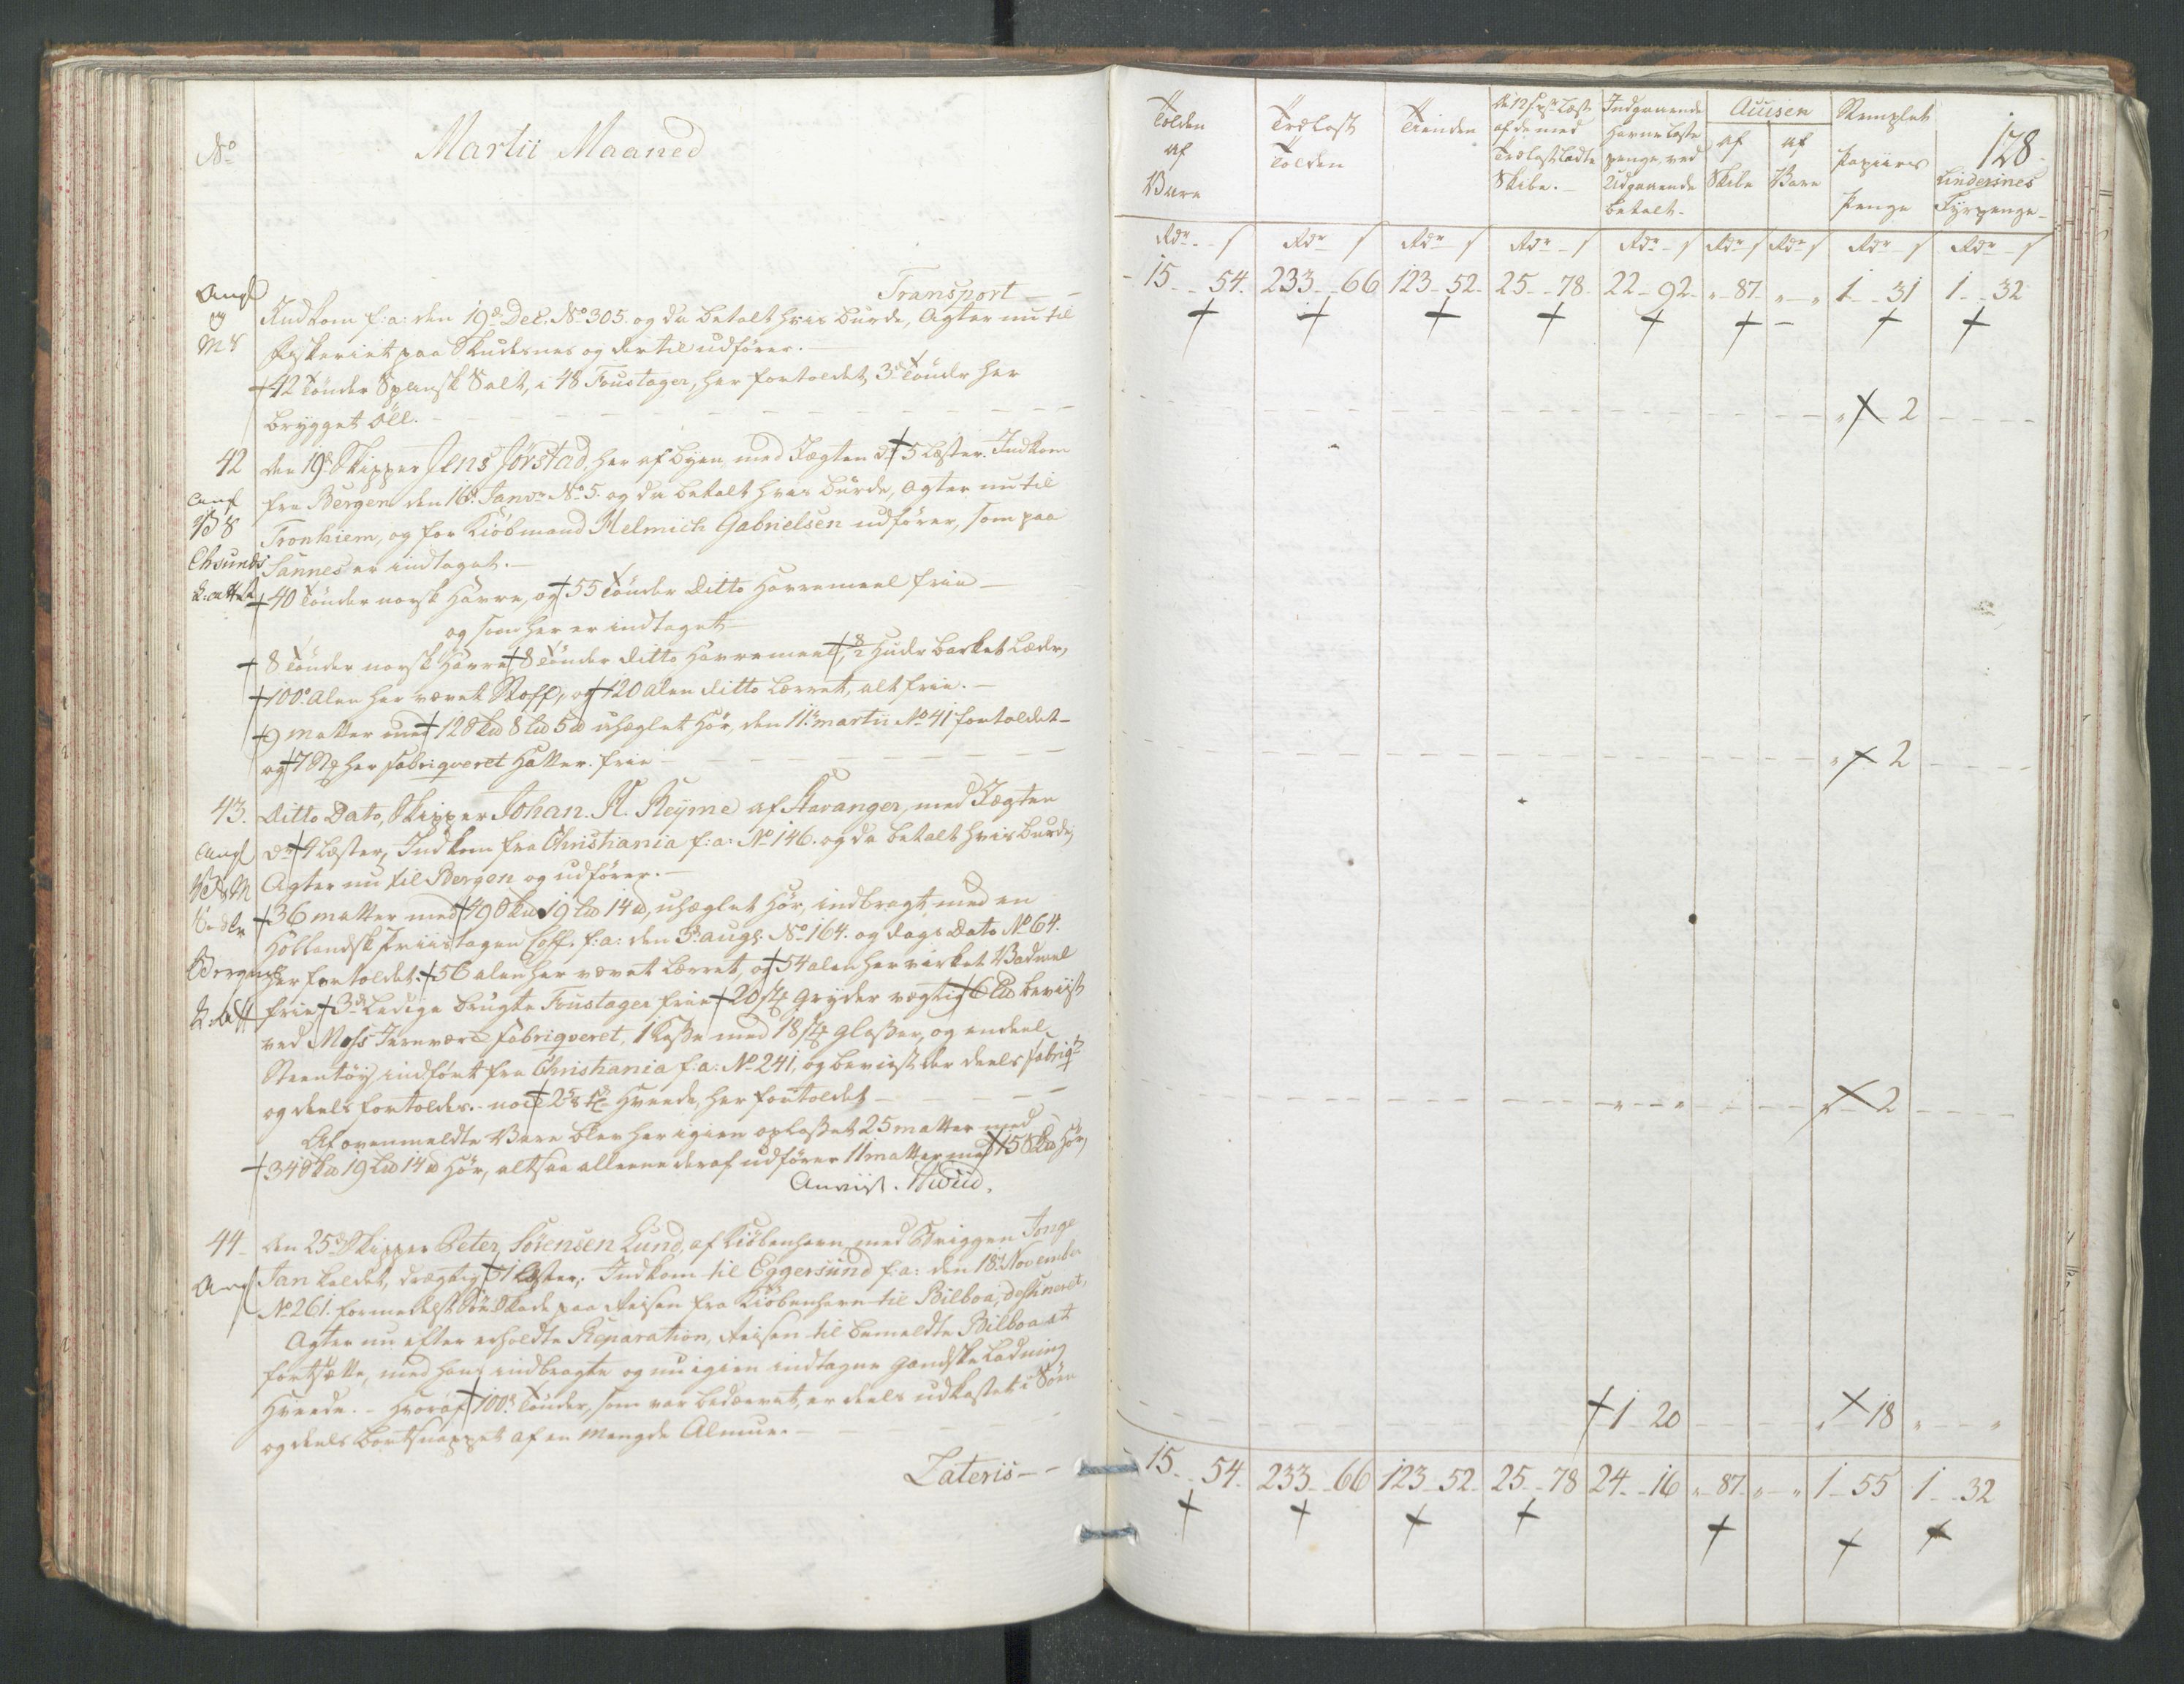 No
Martii Maaned
Transport
Angl
og
M8
Indkom f: a: den 19de Dec. No 305. og da betalt hvis burde, Agter nu til
fiskeriet paa Skudesnes og dertil udfører.
42 Tønder Spansk Salt, i 48 Foustager, her fortoldet, 3de Tønder her
brygget Öll.
42
den 19de Skipper Jens Jørstad, her af byen, med Jægten dr. 5 Læster. Indkom
fra Bergen den 16de Janvr No 5. og da betalt hvis burde, agter nu til
Tronhiem, og for Kiøbmand Helmich Gabrielsen udfører, som paa
Sannes er indtaget.
40 Tønder norsk Havre, og 55 Tønder Ditto Havremeel frie
og som her er indtaget
8 Tønder norsk Havre, 8 Tønder ditto Havremeel, 8/2 Huder barket Læder,
100de Alen her vævet Stoff, og 120 Alen ditto Lærret, alt frie.
9 Matter med 12 Skd 8 Ld 5 d uheglet Hør, den 11te Martii No 41 fortoldet
og 7 St her fabriqveret Hatter. frie
43.
Ditto Dato, Skipper Johan. H. Reyme af Stavanger, med Jægten
dr. 4 Læster, Indkom fra Christiania f: a: No 146. og da betalt hvis burde,
Agter nu til Bergen og udfører.
36 Matter med 49 Skd 19 Ld 14 d, uheglet Hør, indbragt med en
Hollandsk Priistagen Coff. f: a: den 3de Augs. No 164. og dags Dato No 64.
her fortoldet. 56 alen her vævet Lærret, og 54 alen her virket Vadmel
frie, 3de Ledige brugte Foustager frie, 20 st Gryder vægtig 6 Ld beviist
ved Moss Jernværk fabriqveret, 1 Kasse med 18 st Glasser, og endeel
Steentøy indført fra Christiania f: a: No 241, og beviist der deels fabriqt
og deels fortoldet. Hveede, her fortoldet
Af ovenmeldte Vare blev her igien oplosset 25 Matter med
34 Skd 19 Ld 14 d Hør, altsaa alleene deraf udfører 11 Matter med 15 Skd Hør,
Anviist.
44
Angl
den 25de Skipper Peter Sörensen Lund, af Kiøbenhavn, med Briggen Jonge
Jan kaldet, drægtig 51 Læster, Indkom til Eggersund f: a: den 18de November
No 261. formedelst Söe Skade paa Reisen fra Kiøbenhavn til Bilboa, destineret,
Agter nu efter erholdte Reparation, Reisen til bemeldte Bilboa at
fortsætte, med hans indbragte og nu igien indtagne gandske Ladning
Hveede. Hvoraf 100de Tønder, som var bedærvet, er deels udkastet i Söen
og deels bortsnappet af en Mengde Almue.
Lateris
128.
Tolden af Vare
Trælast Tolden
Tiender
de 12 s pr Læst af de med Trælast ladte Skibe.
Indgaaende Havne Læste penge, ved Udgaaende betalt.
Accisen
af Skibe
af Vare
Stemplet Papiirs Penge
Lindesnes Fyrpenge
Rdr s Rdr s Rdr s Rdr s Rdr s Rdr s Rdr s Rdr s Rdr s
15 54. 233 66 123 52. 25 78. 22 92 " 87. " " 1 31 1 32
" 2
" 2
" 2
1 20 " 18 " "
15 54. 233 66 123 52. 25 78 24 16 " 87. " " 1 55 1 32